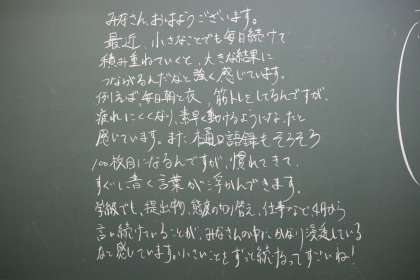 みなさん、おはようございます。
最近、小さなことでも毎日続けて
積み重ねていくと、大きな結果に
つながるんだなと強く感じています。
例えば、毎日朝と夜、筋トレをしてるんですが、
疲れにくくなり、素早く動けるようになったと
感じています。また樋口語録もそろそろ
100枚目になるんですが、慣れてきて、
すぐに書く言葉が浮かんできます。
学級でも、提出物、態度の切り替え、仕事など4月から
言い続けていることが、みなさんの中に、かなり浸透している
なと感じています。小さいことをずっと続けるってすごいね!